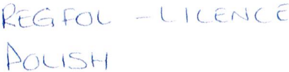 REGFOL - LICENCE
POLISH